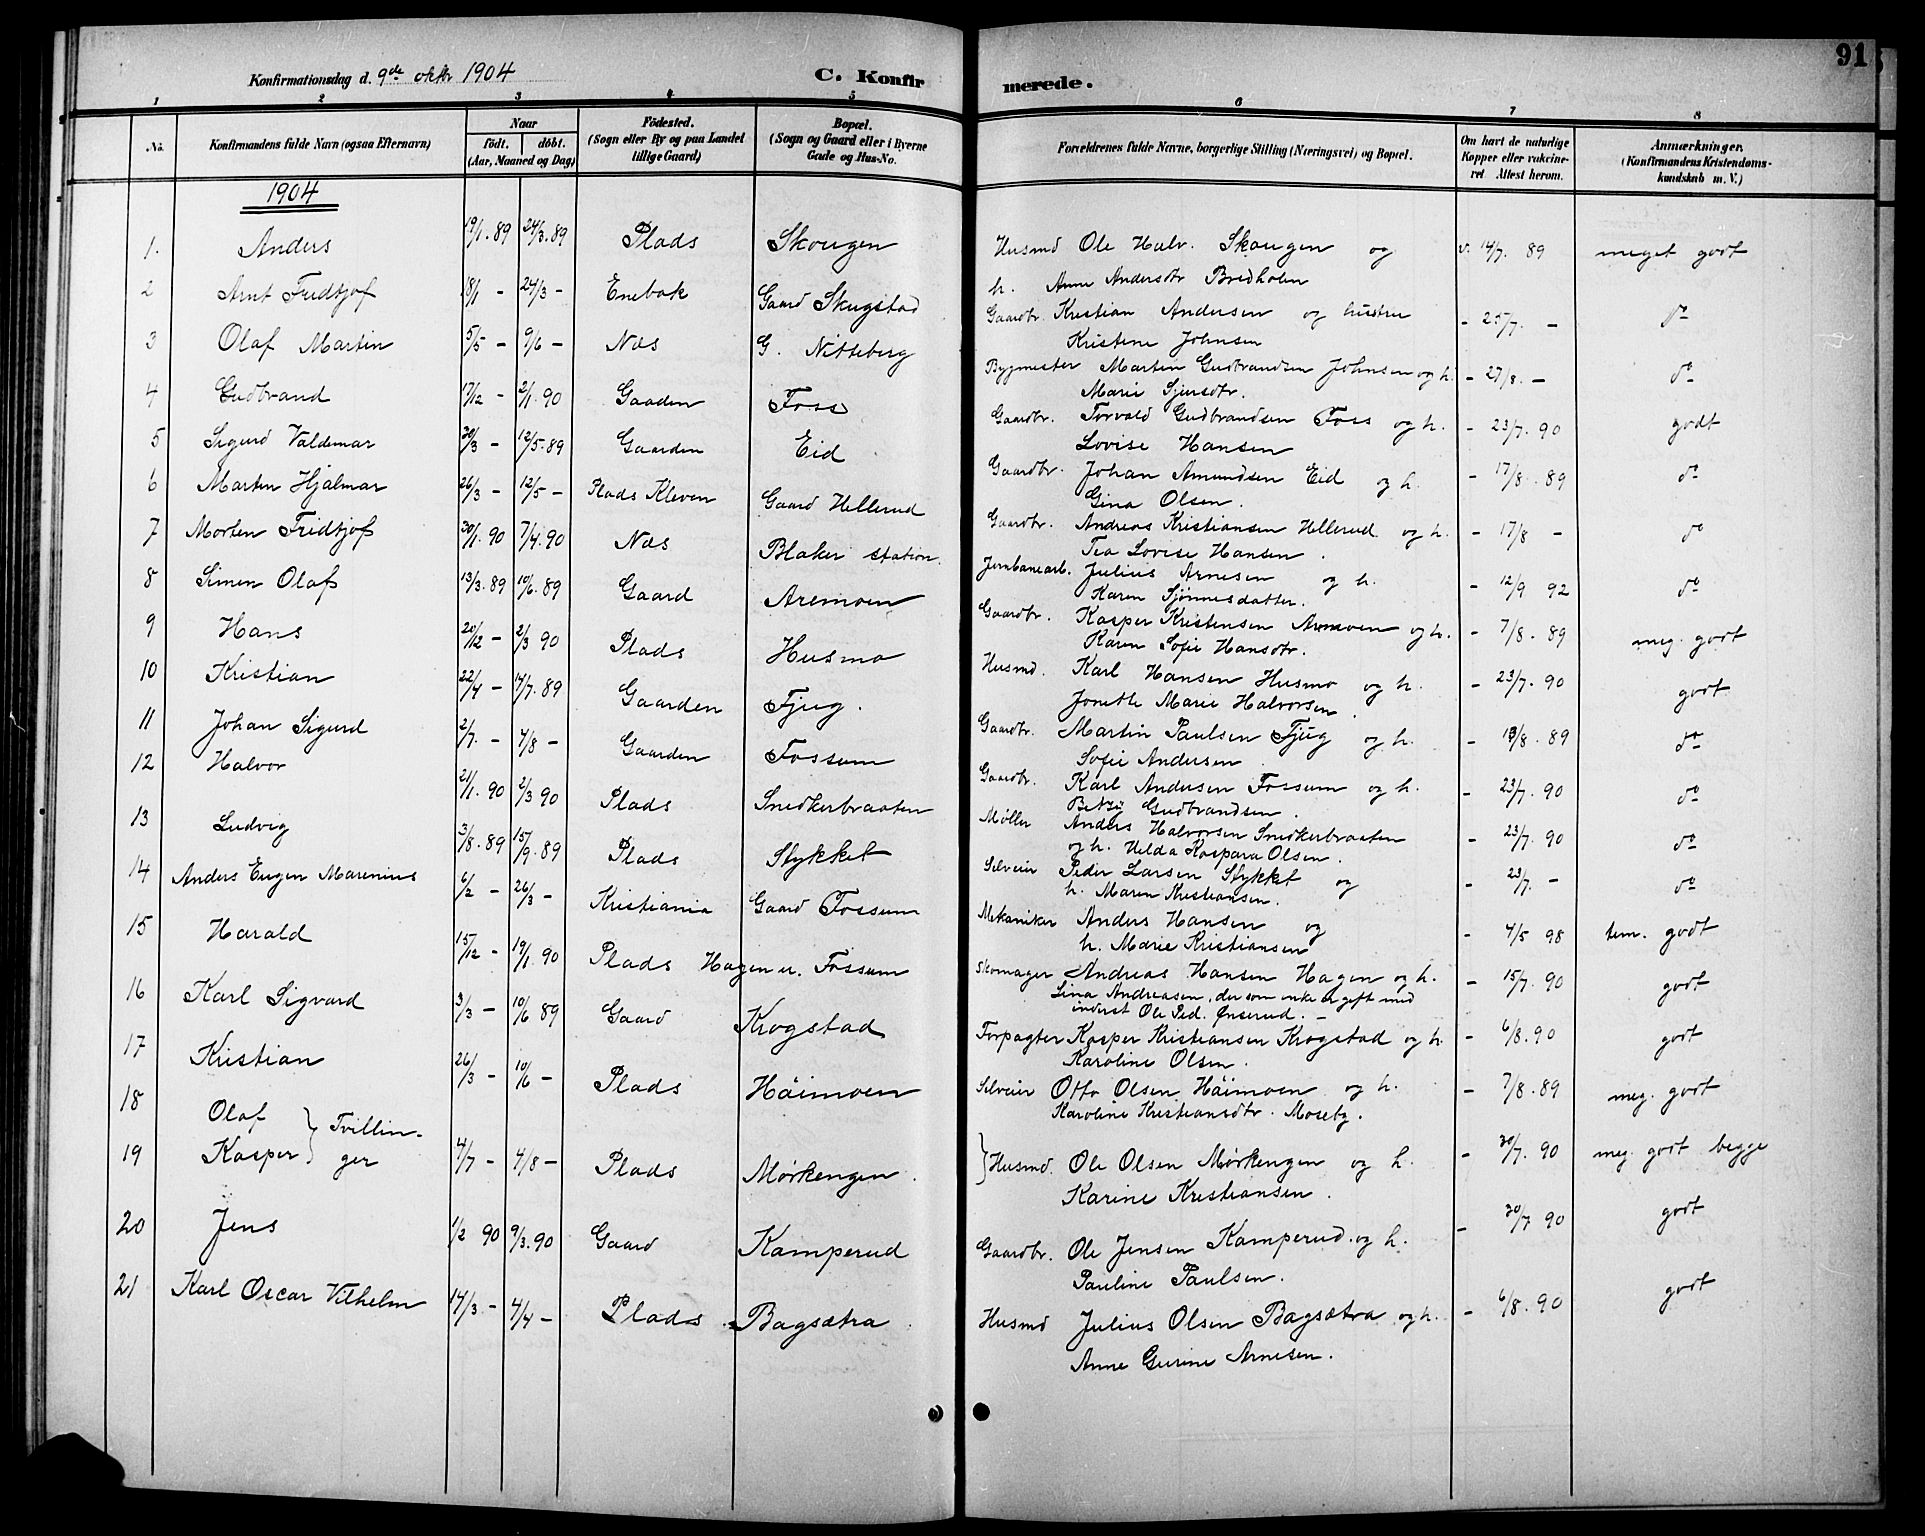 91
Konfirmationsdag d. 9de oktbr 1904 C. Konfirmerede.
1 2 3 4 5 6 7 8
No. Konfirmandens fulde Navn (ogsaa Efternavn) Naar født. døbt. (Aar, Maaned og Dag) Fødested. (Sogn eller By og paa Landet tillige Gaard) Bopæl. (Sogn og Gaard eller i Byerne Gade og Hus-No. Forældrenes fulde Navne, borgerlige Stilling (Næringsvei) og Bopæl. Om havt de naturlige Kopper eller vakcineret Attest herom. Anmærkninger. (Konfirmandens Kristendomskundskab m. V.)
1904
1. Anders 19/1. 89 24/3. 89 Plads Skougen Husmd Ole Halv. Skougen og v. 14/7. 89 meget godt
h. Anne Andersdtr Bredholm
2 Arnt Fridtjof 18/1 - 24/3 - Enebak Gaard Skugstad Gaardbr. Kristian Andersen og hustru - 25/7. - do
Kristine Johnsen
3 Olaf Martin 5/5 - 9/6 - Næs G. Nitteberg Bygmester Martin Gudbrandsen Johnsen og h. - 27/8. - do
Marie Sjursdtr.
4 Gudbrand 17/12 - 2/1. 90 Gaaden Foss Gaardbr. Torvald Gudbrandsen Foss og h. - 23/7. 90 godt
Lovise Hansen
5 Sigurd Valdemar 30/3 - 12/5. 89 Gaarden Eid Gaardbr. Johan Amundsen Eid og h. - 17/8. 89 do
Gina Olsen.
6 Marten Hjalmar 26/3 - 12/5 - Plads Kleven Gaard Hellerud Gaardbr. Andreas Kristiansen Hellerud og h. - 17/8 - do
Tea Lovise Hansen.
7 Morten Fridtjof 30/1. 90 7/4. 90 Næs Blaker station. Jernbanearb. Julius Arnesen og h. - 12/9 92 do
Karen Sjønnesdatter.
8 Simen Olaf 13/3. 89 10/6. 89 Gaard Aremoen Gaardbr. Kasper Kristensen Aremoen og h. - 7/8. 89 meg. godt
Karen Sofie Hansdtr.
9 Hans 20/12 - 2/3 90 Plads Husmo Husmd. Karl Hansen Husmo og h. - 23/7. 90 godt
Jonette Marie Halvorsen.
10 Kristian 22/4 - 14/7. 89 Gaarden Fjug. Gaardbr. Martin Paulsen Fjug og h. - 13/8. 89 do
Sofie Andersen.
11 Johan Sigurd 2/7. - 4/8 - Gaarden Fossum Gaardbr. Karl Andersen Fossum og h. - 23/7. 90 do
Betzy Gudbrandsen.
12 Halvor 21/1. 90 2/3 90 Plads Snedkerbraaten Møller Anders Halvorsen Snedkerbraaten - 23/7. 90 do
og h. Helda Kaspara Olsen.
13 Ludvig 3/8. 89 15/9. 89 Plads Stykket Selveier Peder Larsen Stykket og - 23/7. - do
h. Maren Kristiansen.
14 Anders Eugen Marenius 6/2 - 26/3 - Kristiania Gaard Fossum Mekaniker Anders Hansen og - 4/5 98 tem. godt
h. Marie Kristiansen
15 Harald 15/12 - 19/1. 90 Plads Hagen u. Fossum Skomager Andreas Hansen Hagen og h. - 15/7. 90 godt
Lina Andreasen, der som enke er gift med
inderst Ole Ped. Ønserud. -
16 Karl Sigvard 3/3 - 10/6 89 Gaard Krogstad Forpagter Kasper Kristiansen Krogstad og h. - 6/8. 90 godt
Karoline Olsen.
17 Kristian 26/3 - 10/6 - Plads Høimoen Selveier Otto Olsen Høimoen og h. - 7/8. 89 meg. godt
Karoline Kristiansdtr. Moseby.
18 Olaf } Tvillin-
19 Kasper } ger 4/7 - 4/8 - Plads Mørkengen. } Husmd. Ole Olsen Mørkengen og h. - 30/7. 90 meg. godt begge
Karine Kristiansen.
20 Jens 1/2 90 9/3. 90 Gaard Kamperud Gaardbr. Ole Jensen Kamperud. og h. - 30/7 90 godt
Pauline Paulsen.
21 Karl Oscar Vilhelm 14/3 - 4/4 - Plads Bagsætra Husmd Julius Olsen Bagsætra og h. - 6/8. 90 godt
Anne Gurine Arnesen.